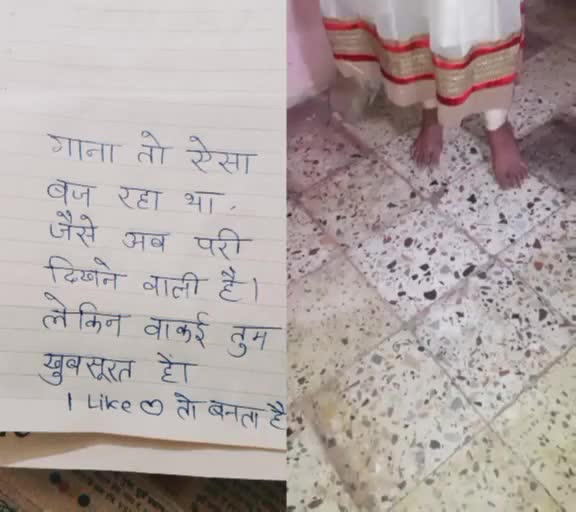 गाना तो ऐसा
बज रहा था.
जैसे अब परी
दिखने वाली है।
लेकिन वाकई तुम
खुबसूरत हो।
1 Like ♡ तो बनता है